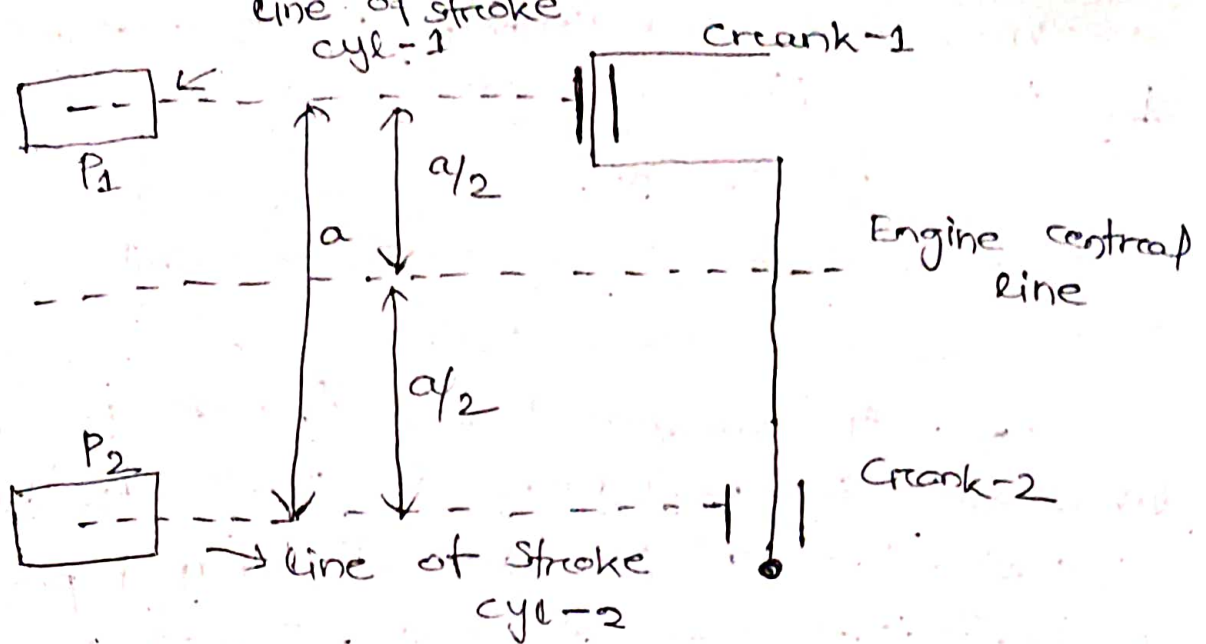 Line of stroke
cyl-1
Crank-1
P1
a/2
a
Engine central
line
a/2
P2
Crank-2
Line of Stroke
cyl-2